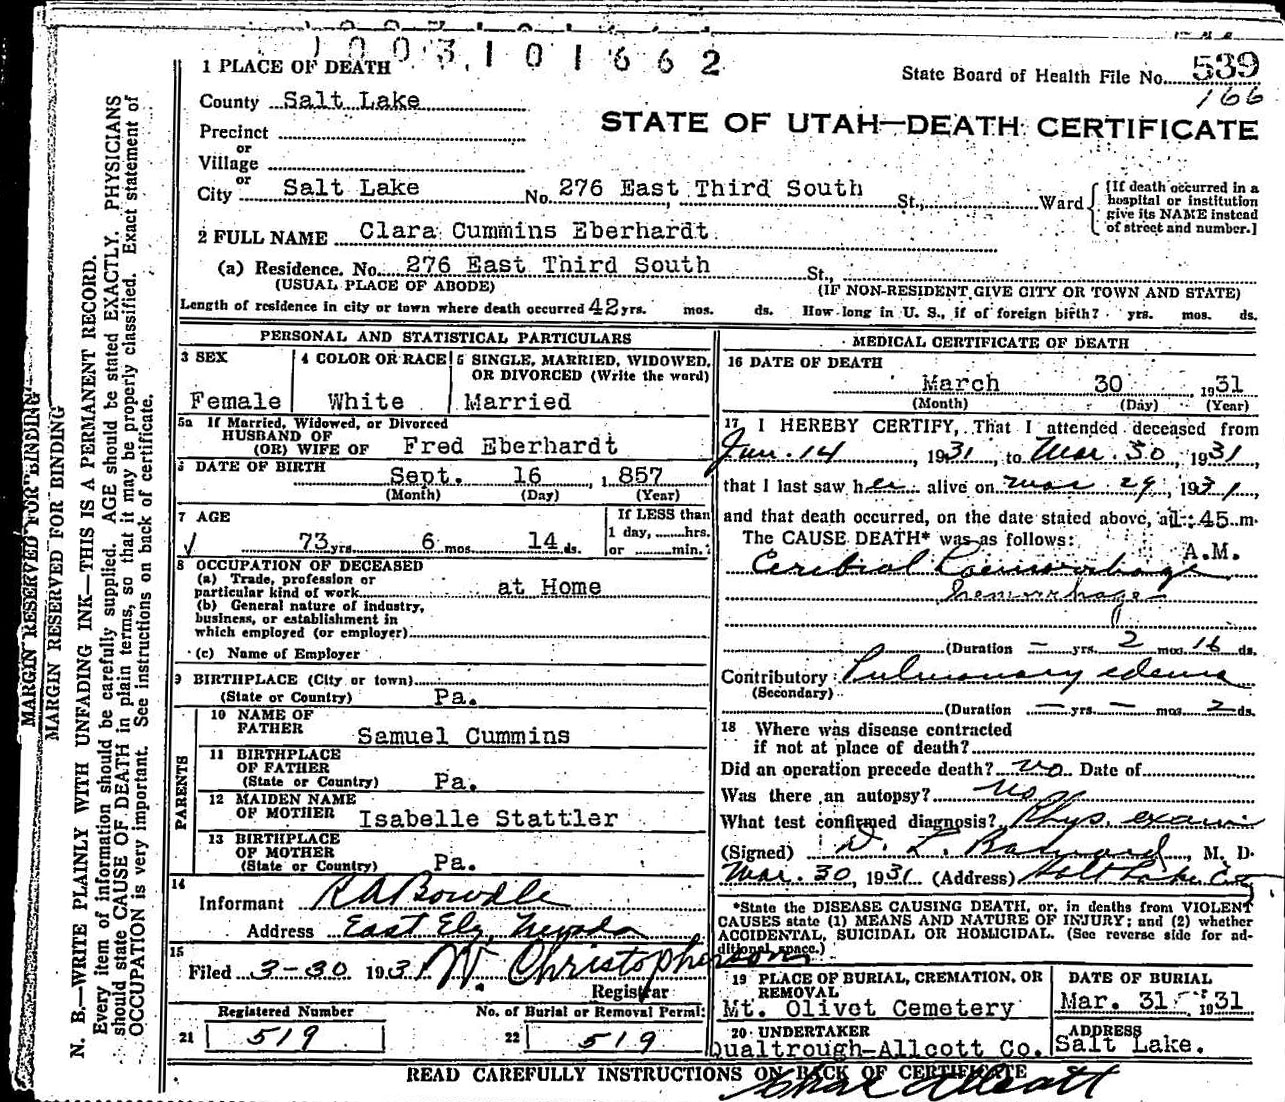 1003101662
1 PLACE OF DEATH
State Board of Health File No. 539
166
County Salt Lake
STATE OF UTAH—DEATH CERTIFICATE
Precinct
or
Village
or
City Salt Lake No. 276 East Third South St., Ward
[If death occurred in a hospital or institution give its NAME instead of street and number.]
2 FULL NAME Clara Cummins Eberhardt
(a) Residence. No. 276 East Third South St.,
(USUAL PLACE OF ABODE) (IF NON-RESIDENT GIVE CITY OR TOWN AND STATE)
Length of residence in city or town where death occurred 42 yrs. mos. ds. How long in U. S., if of foreign birth? yrs. mos. ds.
PERSONAL AND STATISTICAL PARTICULARS
3 SEX
Female
4 COLOR OR RACE
White
5 SINGLE, MARRIED, WIDOWED,
OR DIVORCED (Write the word)
Married
5a If Married, Widowed, or Divorced
HUSBAND OF
(OR) WIFE OF Fred Eberhardt
6 DATE OF BIRTH Sept. 16, 1857
(Month) (Day) (Year)
7 AGE
73 yrs. 6 mos. 14 ds.
If LESS than
1 day, hrs.
or min.
8 OCCUPATION OF DECEASED
(a) Trade, profession or
particular kind of work at Home
(b) General nature of industry,
business, or establishment in
which employed (or employer)
(c) Name of Employer
9 BIRTHPLACE (City or town)
(State or Country) Pa.
PARENTS
10 NAME OF
FATHER Samuel Cummins
11 BIRTHPLACE
OF FATHER
(State or Country) Pa.
12 MAIDEN NAME
OF MOTHER Isabelle Stattler
13 BIRTHPLACE
OF MOTHER
(State or Country) Pa.
14
Informant R A Bowdle
Address East Ely, Nevada
15
Filed 3-30 1931 W. Christopherson
Registrar
Registered Number No. of Burial or Removal Permit
21 519 22 519
MEDICAL CERTIFICATE OF DEATH
16 DATE OF DEATH
March 30 1931
(Month) (Day) (Year)
17 I HEREBY CERTIFY, That I attended deceased from
Jan. 14, 1931, to Mar. 30, 1931,
that I last saw her alive on Mar 29, 1931,
and that death occurred, on the date stated above, at 1:45 m.
The CAUSE DEATH* was as follows: A.M.
Cerebral Hemorrhage
hemorrhage
(Duration — yrs. 2 mos. 16 ds.
Contributory Pulmonary edema
(Secondary)
(Duration — yrs. — mos. 2 ds.
18 Where was disease contracted
if not at place of death?
Did an operation precede death? no Date of
Was there an autopsy? no
What test confirmed diagnosis? Phys. exam
(Signed) D. L. M. D.
Mar. 30, 1931 (Address) Salt Lake City
*State the DISEASE CAUSING DEATH, or, in deaths from VIOLENT
CAUSES state (1) MEANS AND NATURE OF INJURY; and (2) whether
ACCIDENTAL, SUICIDAL OR HOMICIDAL. (See reverse side for ad-
ditional space.)
19 PLACE OF BURIAL, CREMATION, OR
REMOVAL
Mt. Olivet Cemetery
DATE OF BURIAL
Mar. 31 1931
20 UNDERTAKER
Qualtrough-Allcott Co.
ADDRESS
Salt Lake.
READ CAREFULLY INSTRUCTIONS ON BACK OF CERTIFICATE
Allcott
MARGIN RESERVED FOR BINDING
MARGIN RESERVED FOR BINDING
N. B.—WRITE PLAINLY WITH UNFADING INK—THIS IS A PERMANENT RECORD.
Every item of information should be carefully supplied. AGE should be stated EXACTLY. PHYSICIANS
should state CAUSE OF DEATH in plain terms, so that it may be properly classified. Exact statement of
OCCUPATION is very important. See instructions on back of certificate.